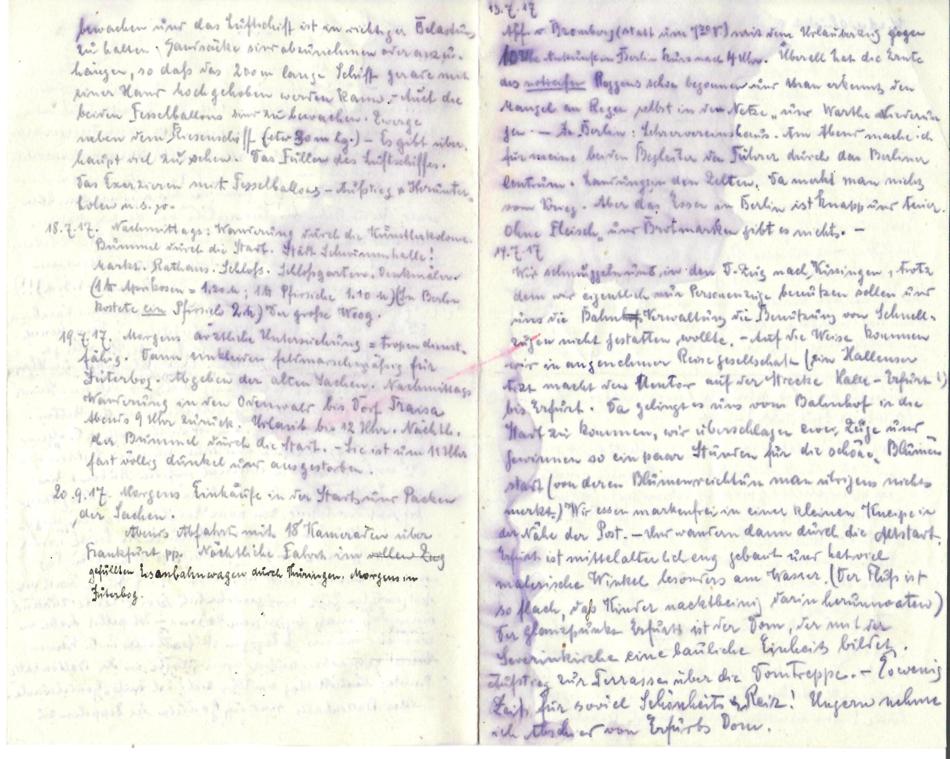 bewachen und das Luftschiff ist in richtiger Belastung
zu halten. Sandsäcke sind abzunehmen oder anzu-
hängen, so daß das 200 m lange Schiff gerade mit
einer Hand hochgehoben werden kann. - Auch die
beiden Fesselballons sind zu bewachen. Zwerge
neben dem Riesenschiff (etw 30 m lg.) - Es gibt über-
haupt viel zu sehen. Das Füllen des Luftschiffes.
Das Exerzieren mit Fesselballons - Aufstieg u Herunter-
holen u.s.w.
18.7.17. Nachmittags: Wanderung durch die Künstlerkolonie.
Bummel durch die Stadt. Städt. Schwimmhalle!
Markt. Rathaus. Schloß. Schloßgarten. Denkmäler.
(1 tt Aprikosen = 1.20 M; 1 tt Pfirsiche 1.10 M) (In Berlin
kostete ein Pfirsich 2 M) Der große Woog.
19.7.17. Morgens ärztliche Untersuchung = tropendienst-
fähig. Dann einkleiden feldmarschmäßig für
Jüterbog. Abgeben der alten Sachen. Nachmittags
Wanderung in den Odenwald bis Dorf Traisa
Abends 9 Uhr zurück. Urlaub bis 12 Uhr. Nächtli-
cher Bummel durch die Stadt. - Sie ist um 11 Uhr
fast völlig dunkel und ausgestorben.
20.9.17. Morgens Einkäufe in der Stadt und Packen
der Sachen.
Abends Abfahrt mit 18 Kameraden über
Frankfurt pp. Nächtliche Fahrt im vollen Zug
gefüllten Eisenbahnwagen durch Thüringen. Morgens in
Jüterbog.
13.7.17
Abf. v. Bromberg (statt um 7 20 V) mit dem Urlauberzug gegen
10 Uhr Ankunft in Berlin kurz nach 4 Uhr. Überall hat die Ernte
des notreifen Roggens schon begonnen und man erkennt den
Mangel an Regen selbst in den Netze- und Warthe Niederun-
gen. - In Berlin: Lehrervereinshaus. Am Abend mache ich
für meine beiden Begleiter den Führer durch das Berliner
Centrum. Landung in den Zelten. Da merkt man nichts
vom Krieg. Aber das Essen in Berlin ist knapp und teuer.
Ohne Fleisch- und Brotmarken gibt es nichts. -
14.7.17
Wir schmuggeln uns in den D-Zug nach Kissingen, trotz
dem wir eigentlich nur Personenzüge benützen sollen und
uns die Bahnhof Verwaltung die Benützung von Schnell-
zügen nicht gestatten wollte. - Auf die Weise kommen
wir in angenehmer Reisegesellschaft (ein Hallenser
Arzt macht den Mentor auf der Strecke Halle - Erfurt!)
bis Erfurt. Da gelingt es uns vom Bahnhof in die
Stadt zu kommen, wir überschlagen zwei Züge und
gewinnen so ein paar Stunden für die schöne Blumen
stadt (von deren Blumenreichtum man übrigens nichts
merkt.) Wir essen markenfrei in einer kleinen Kneipe in
der Nähe der Post. - Und wandern dann durch die Altstadt.
Erfurt ist mittelalterlich eng gebaut und hat viel
malerische Winkel besonders am Wasser. (Der Fluß ist
so flach, daß Kinder nacktbeinig darin herumwaten)
Der Glanzpunkt Erfurts ist der Dom, der mit der
Severinkirche eine bauliche Einheit bildet.
Aufstieg zur Terrasse über die Domtreppe. - So wenig
Zeit für soviel Schönheits Reiz! Ungern nehme
ich Abschied von Erfurts Dom.